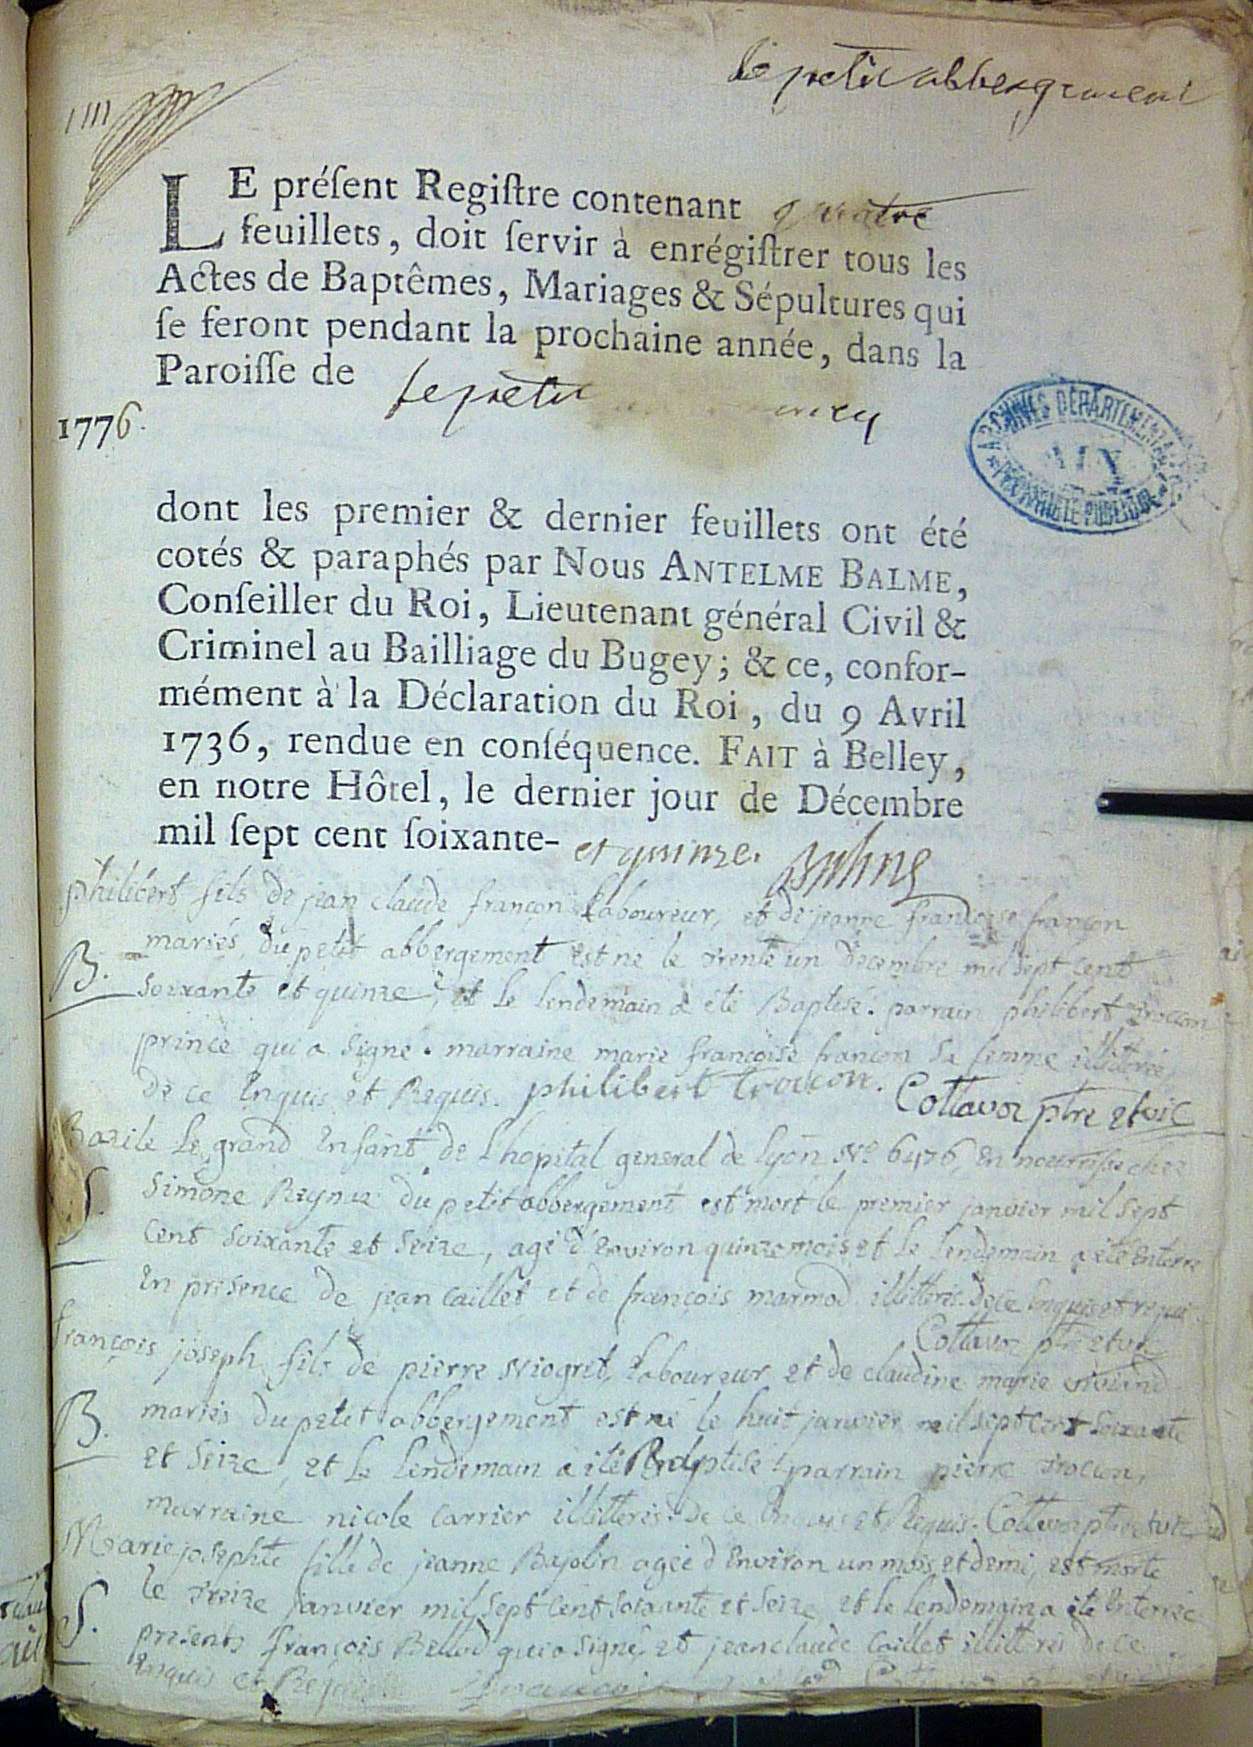 le petit abbergement
LE préſent Regiſtre contenant quatre
feuillets, doit ſervir à enrégiſtrer tous les
Actes de Baptêmes, Mariages & Sépultures qui
ſe feront pendant la prochaine année, dans la
Paroiſſe de le petit
1776.
ARCHIVES DÉPARTEMENTALES
AIN
PROPRIÉTÉ PUBLIQUE
dont les premier & dernier feuillets ont été
cotés & paraphés par Nous ANTELME BALME,
Conſeiller du Roi, Lieutenant général Civil &
Criminel au Bailliage du Bugey; & ce, confor-
mément à la Déclaration du Roi, du 9 Avril
1736, rendue en conſéquence. FAIT à Belley,
en notre Hôtel, le dernier jour de Décembre
mil ſept cent ſoixante- et quinze. Balme
philibert fils de jean claude françon laboureur, et de jeanne françoise françon
mariés, du petit abbergement est né le trente un decembre mil sept cent
B. soixante et quinze, et le lendemain a eté Baptisé. parrain philibert trocon
prince qui a signé. marraine marie françoise françon sa femme illitterée
de ce Enquis et Requis. philibert trocon. Cottavoz ptre et vic
Bazile Le grand Enfant de l'hopital general de lyon No 6476, En nourrisse chez
S. Simone Reynier du petit abbergement est mort le premier janvier mil sept
cent soixante et seize, agé d'Environ quinze mois et le lendemain a eté Enterré
En presence de jean Caillet et de françois marmod illitteris. de ce Enquis et requis
Cottavoz ptre et vic
françois joseph fils de pierre Niogret, laboureur et de claudine marie
B. mariés du petit abbergement est né le huit janvier mil sept cent soixante
et seize, et le lendemain a eté Baptisé parrain pierre trocon,
marraine nicole carrier illitteris. de ce Enquis et Requis. Cottavoz ptre et vic
Marie josephte fille de jeanne Bajolin agée d'Environ un mois et demi, est morte
le treize janvier mil sept cent soixante et seize, et le lendemain a eté Enterrée
S. presents françois Bellod qui a signé, et jean claude Caillet illitteris de ce
Enquis et Requis